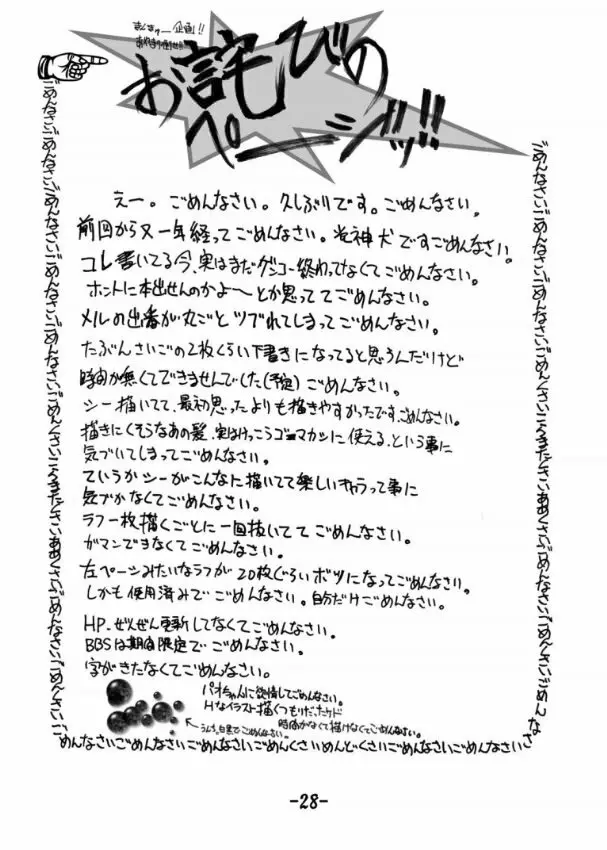 まんきゅー企画!!
お詫びの
ページッ!!
えー。ごめんなさい。久しぶりです。ごめんなさい。
前回から又一年経ってごめんなさい。光神犬ですごめんなさい。
コレ書いてる今、実はまだゲンコー終わってなくてごめんなさい。
ホントに本出せんのかよ〜とか思っててごめんなさい。
メルの出番が丸ごとツブれてしまってごめんなさい。
たぶんさいごの2枚くらい下書きになってると思うんだけど
時間が無くてできませんでした(予定)ごめんなさい。
シー描いてて、最初思ったよりも描きやすかったです、ごめんなさい。
描きにくそうなあの髪、実はけっこうゴーマカシに使える、という事に
気づいてしまってごめんなさい。
ていうかシーがこんなに描いてて楽しいキャラって事に
気づかなくてごめんなさい。
ラフ一枚描くごとに一回抜いててごめんなさい。
ガマンできなくてごめんなさい。
左ページみたいなラフが20枚ぐらいボツになってごめんなさい。
しかも使用済みでごめんなさい。自分だけごめんなさい。
HP、ぜんぜん更新してなくてごめんなさい。
BBSは期間限定でごめんなさい。
字がきたなくてごめんなさい。
パオちゃんに欲情してごめんなさい。
Hなイラスト描くつもりだったケド
時間がなくて描けなくてごめんなさい。
ごめんなさいごめんなさいごめんなさいごめんくさいめんどくさいごめんなさいごめんなさい
-28-